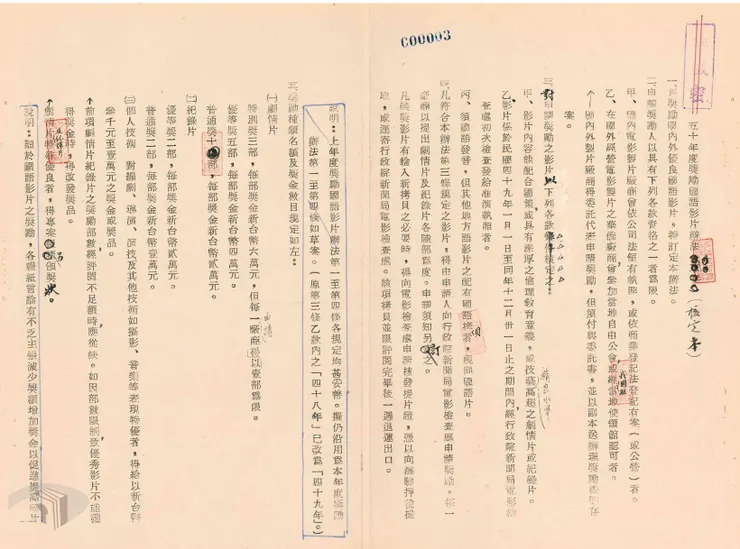 C00003
密
五十年度獎勵國語影片辦法(核定本)
一、為獎勵國內外優良國語影片,特訂定本辦法。
二、申請獎勵人以具有下列各款資格之一者為限。
甲、國內電影製片廠商曾依公司法領有執照,或依商業登記法登記有案(或公營)者。
乙、在國外經營電影製片之華僑廠商會參加當地自由公會或經當地使領館認可者。
國內外製片廠商得委託代表申請獎勵,但須付與委託書,並以副本送辦理獎勵機關存
案。
三、申請獎勵之影片以下列各款
甲、影片內容能配合國策或具有深厚之倫理教育意義,或技藝高超之劇情片或紀錄片。
乙、影片係於民國四十九年一月一日至同年十二月卅一日止之期間內經行政院新聞局電影檢
查處初次檢查發給准演執照者。
丙、須國語發音,但其他地方語影片之配有國語拷貝者,視同國語片。
凡符合本辦法第三條規定之影片,得由申請人向行政院新聞局電影檢查處申請獎勵。每一
廠商以提出劇情片及紀錄片各陸部為度。申請須知另訂之。
凡獎影片有輸入新拷貝之必要時,得向電影檢查處申請核發提片證,憑以向海關擇從提
取,或逕寄行政院新聞局電影檢查處。該項拷貝並限評閱完畢後一週退運出口。
說明:上年度獎勵國語影片辦法第一至第四條各規定均甚妥善。擬仍沿用為本年度獎勵
辦法第一至第四條如草案。(原第三條乙款內之「四十八年」已改為「四十九年」。)
五、獎勵種類名額及獎金數目規定如左:
(一)劇情片
特別獎三部,每部獎金新台幣六萬元,但每一廠商以壹部為限。
優等獎五部,每部獎金新台幣四萬元。
普通獎十部,每部獎金新台幣貳萬元。
(二)紀錄片
優等獎二部,每部獎金新台幣貳萬元。
普通獎二部,每部獎金新台幣壹萬元。
(三)個人技術 對編劇、導演、演技及其他技術如攝影、音樂等表現特優者,得給以新台幣
參千元至壹萬元之獎金或獎品。
前項劇情片紀錄片之獎勵部數經評閱不足額時應從缺。如因部數限制致優秀影片不能獲
得獎金時,得改發獎品。
劇情片特別優良者,得專案頒獎
說明:鑒於國語影片之獎勵,各報紙曾論有不乏主張減少獎額增加獎金以促進獎勵